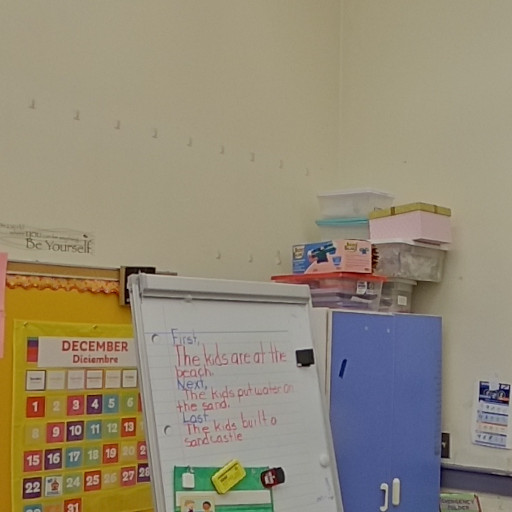 you
Be Yourself
DECEMBER
Diciembre
1 2 3 4 5 6
8 9 10 11 12 13
15 16 17 18 19 20
22 24 25 26 27 28
31
First,
The kids are at the
beach.
Next,
The kids put water on
the sand.
Last
The kids built a
sandcastle